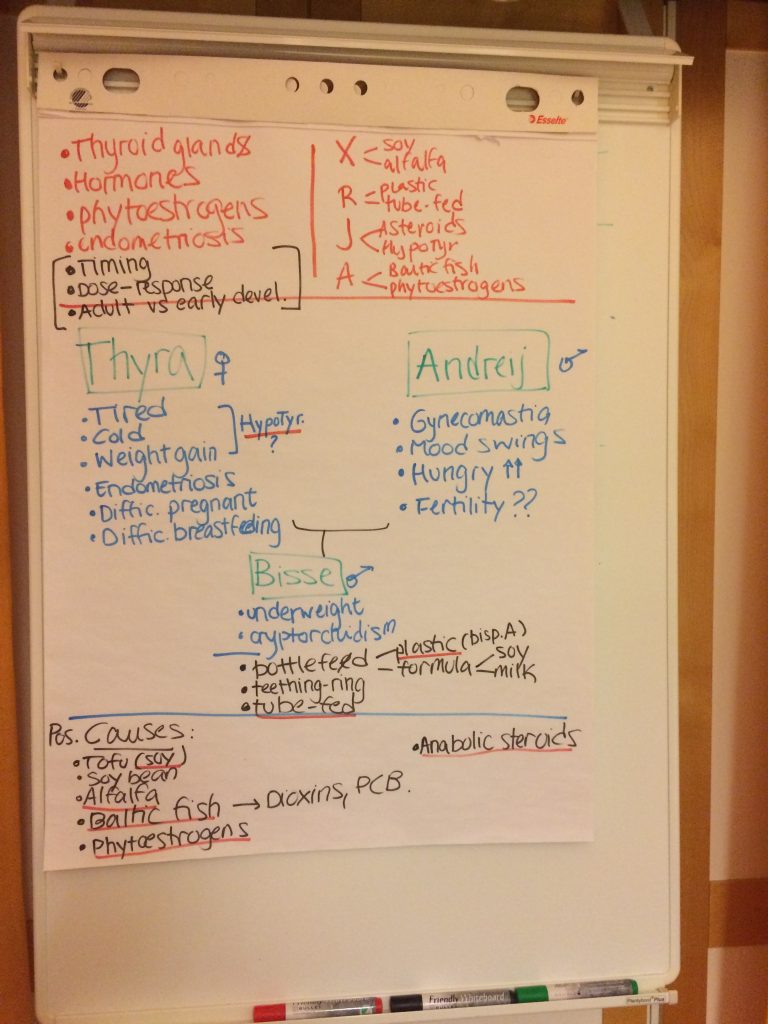 Esselte
• Thyroid glands
• Hormones
• phytoestrogens
• endometriosis
• Timing
• Dose-response
• Adult vs early devel.
X < soy
alfalfa
R = plastic
tube-fed
J < Asteroids
HypoTyr
A < Baltic fish
phytoestrogens
Thyra ♀
• Tired
• Cold
• Weight gain
HypoTyr.
?
• Endometriosis
• Diffic. pregnant
• Diffic. breastfeeding
Andreij ♂
• Gynecomastia
• Mood swings
• Hungry ↑↑
• Fertility ??
Bisse ♂
• underweight
• cryptorchidism
• bottlefeed < plastic (bisp.A)
– formula < soy
milk
• teething-ring
• tube-fed
Pos. Causes:
• Tofu (soy)
• Soy bean
• Alfalfa
• Baltic fish → Dioxins, PCB.
• Phytoestrogens
• Anabolic steroids
Friendly Whiteboard